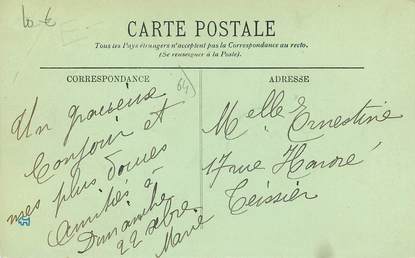 CARTE POSTALE
Tous les Pays étrangers n'acceptent pas la Correspondance au recto.
(Se renseigner à la Poste).
CORRESPONDANCE
ADRESSE
64)
Un gracieux
bonjour et
mes plus douces
amitiés à
Dimanche
22 xbre.
Marie
Melle Ernestine
17 rue Honoré
Teissier